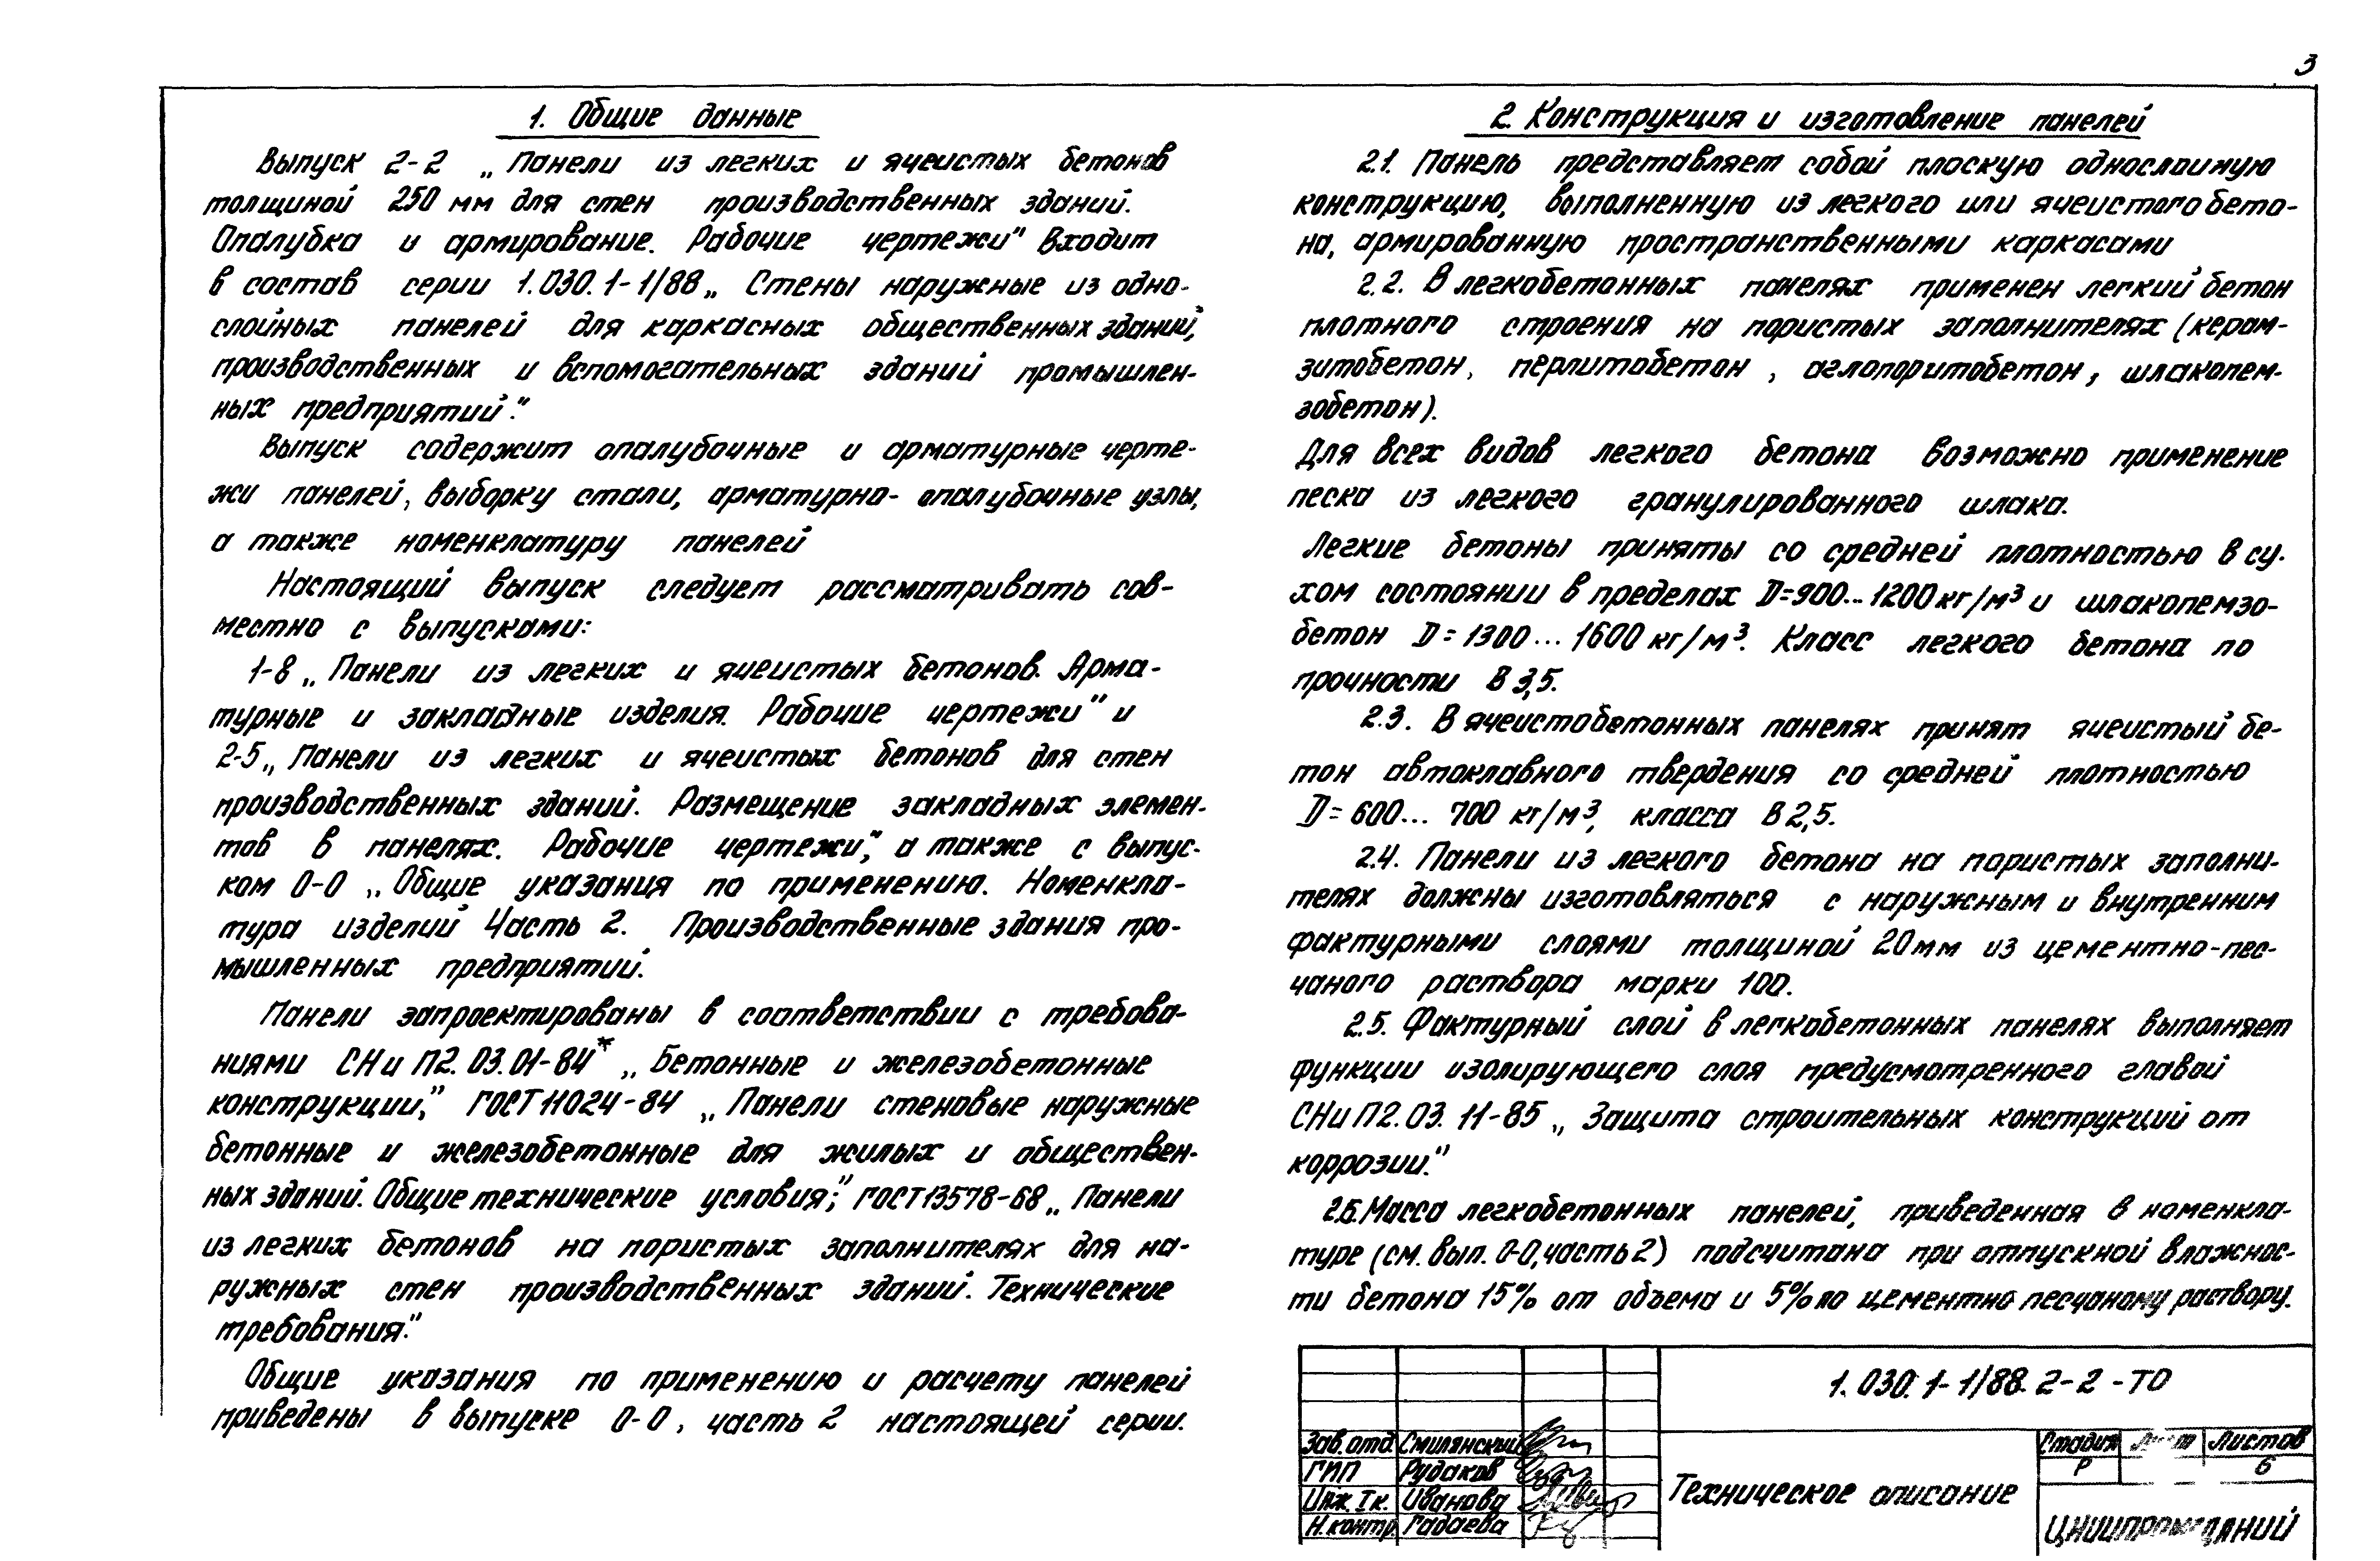 3
1. Общие данные
Выпуск 2-2 „Панели из легких и ячеистых бетонов
толщиной 250 мм для стен производственных зданий.
Опалубка и армирование. Рабочие чертежи" входит
в состав серии 1.030.1-1/88 „Стены наружные из одно-
слойных панелей для каркасных общественных зданий,
производственных и вспомогательных зданий промышлен-
ных предприятий."
Выпуск содержит опалубочные и арматурные черте-
жи панелей, выборку стали, арматурно-опалубочные узлы,
а также номенклатуру панелей
Настоящий выпуск следует рассматривать сов-
местно с выпусками:
1-8 „Панели из легких и ячеистых бетонов. Арма-
турные и закладные изделия. Рабочие чертежи" и
2-5 „Панели из легких и ячеистых бетонов для стен
производственных зданий. Размещение закладных элемен-
тов в панелях. Рабочие чертежи", а также с выпус-
ком 0-0 „Общие указания по применению. Номенкла-
тура изделий Часть 2. Производственные здания про-
мышленных предприятий.
Панели запроектированы в соответствии с требова-
ниями СНиП2.03.01-84* „Бетонные и железобетонные
конструкции", ГОСТ 11024-84 „Панели стеновые наружные
бетонные и железобетонные для жилых и обществен-
ных зданий. Общие технические условия"; ГОСТ 13578-68 „Панели
из легких бетонов на пористых заполнителях для на-
ружных стен производственных зданий. Технические
требования."
Общие указания по применению и расчету панелей
приведены в выпуске 0-0, часть 2 настоящей серии.
2. Конструкция и изготовление панелей
2.1. Панель представляет собой плоскую однослойную
конструкцию, выполненную из легкого или ячеистого бето-
на, армированную пространственными каркасами
2.2. В легкобетонных панелях применен легкий бетон
плотного строения на пористых заполнителях (керам-
зитобетон, перлитобетон, аглопоритобетон, шлакопем-
зобетон).
Для всех видов легкого бетона возможно применение
песка из легкого гранулированного шлака.
Легкие бетоны приняты со средней плотностью в су-
хом состоянии в пределах D=900...1200 кг/м³ и шлакопемзо-
бетон D=1300...1600 кг/м³. Класс легкого бетона по
прочности В 3,5.
2.3. В ячеистобетонных панелях принят ячеистый бе-
тон автоклавного твердения со средней плотностью
D=600...700 кг/м³, класса В 2,5.
2.4. Панели из легкого бетона на пористых заполни-
телях должны изготовляться с наружным и внутренним
фактурными слоями толщиной 20 мм из цементно-пес-
чаного раствора марки 100.
2.5. Фактурный слой в легкобетонных панелях выполняет
функции изолирующего слоя предусмотренного главой
СНиП2.03.11-85 „Защита строительных конструкций от
коррозии."
2.6. Масса легкобетонных панелей, приведенная в номенкла-
туре (см. вып. 0-0, часть 2) подсчитана при отпускной влажнос-
ти бетона 15% от объема и 5% по цементно песчаному раствору.
1.030.1-1/88.2-2-ТО
Зав. отд. Смилянский
ГИП Рудаков
Инж. I к. Иванова
Н. контр. Гадаева
Техническое описание
Стадия Лист Листов
Р 6
ЦНИИПРОМЗДАНИЙ